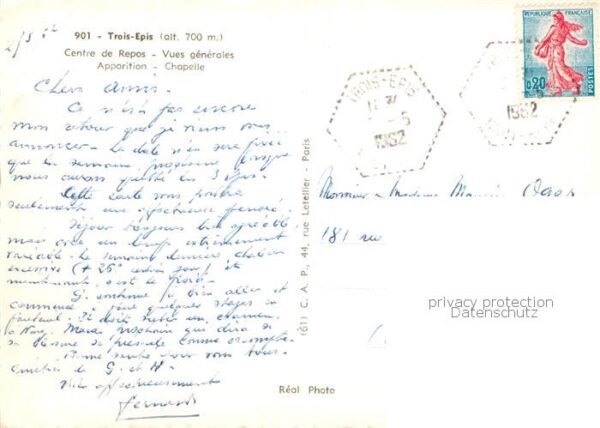 901 - Trois-Epis (alt. 700 m.)
Centre de Repos - Vues générales
Apparition - Chapelle
Chers Amis.
Ce n'est pas encore
mon retour que je viens vous
annoncer. La date n'en sera fixée
que la semaine prochaine lorsque
nous aurons quitté les 3 Epis.
Cette carte vous portera
seulement une affectueuse pensée.
Séjour toujours bien agréable
mais avec un temps extrêmement
variable. La semaine dernière chaleur
excessive (+ 25°
maintenant c'est le froid.
G. continue à bien aller et
commence à faire quelques stages au
fauteuil. Il doit subir un examen
Mardi prochain qui dira si
sa blessure
Bonne santé pour vous tous.
Amitiés de G. et H.
Très affectueusement
Fernand
Réal Photo
(61) C. A. P., 44, rue Letellier - Paris
TROIS-EPIS
1962
REPUBLIQUE FRANÇAISE
0,20
POSTES
1962
Monsieur & Madame
181 rue
privacy protection
Datenschutz